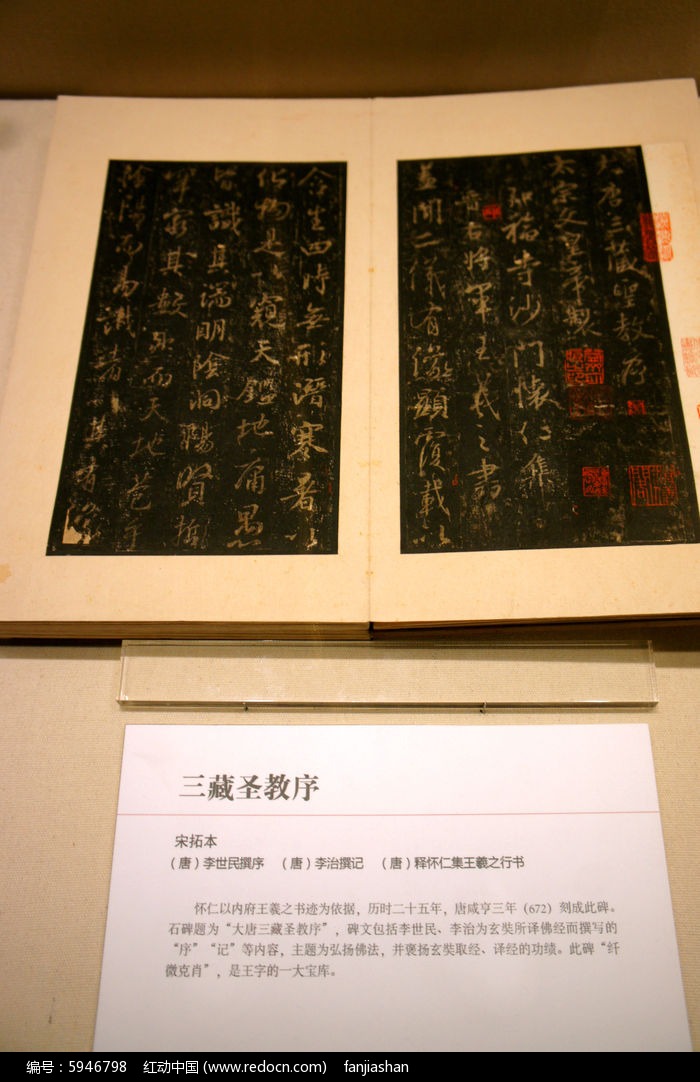 大唐三藏聖教序
太宗文皇帝製
弘福寺沙門懷仁集
晉右將軍王羲之書
蓋聞二儀有像顯覆載以
含生四時無形潛寒暑以
化物是以窺天鑑地庸愚
皆識其端明陰洞陽賢哲
罕窮其數然而天地苞乎
陰陽而易識者以其有像
三藏圣教序
宋拓本
（唐）李世民撰序 （唐）李治撰记 （唐）释怀仁集王羲之行书
怀仁以内府王羲之书迹为依据，历时二十五年，唐咸亨三年（672）刻成此碑。
石碑题为“大唐三藏圣教序”，碑文包括李世民、李治为玄奘所译佛经而撰写的
“序”“记”等内容，主题为弘扬佛法，并褒扬玄奘取经、译经的功绩。此碑“纤
微克肖”，是王字的一大宝库。
编号：5946798 红动中国 (www.redocn.com) fanjiashan